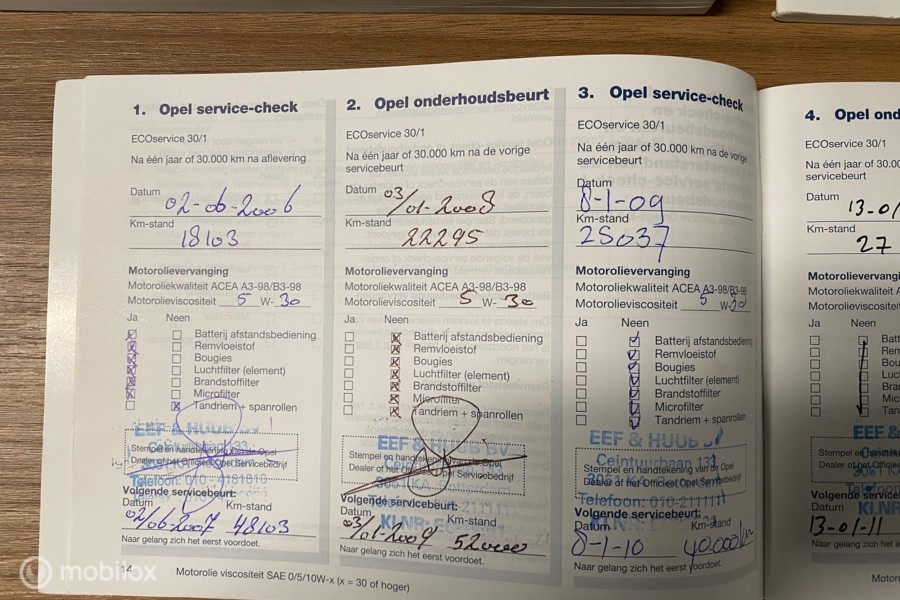 1. Opel service-check
ECOservice 30/1
Na één jaar of 30.000 km na aflevering
Datum
02-06-2006
Km-stand
18103
Motorolievervanging
Motoroliekwaliteit ACEA A3-98/B3-98
Motorolieviscositeit 5 W- 30
Ja Neen
Batterij afstandsbediening
Remvloeistof
Bougies
Luchtfilter (element)
Brandstoffilter
Microfilter
Tandriem + spanrollen
EEF & HUUB BV
Ceintuurbaan 133
Stempel en handtekening van de Opel
Dealer of het Officieel Opel Servicebedrijf
Telefoon: 010 - 4181810
Volgende servicebeurt:
Datum Km-stand
02/06-2007 48103
Naar gelang zich het eerst voordoet.
14
Motorolie viscositeit SAE 0/5/10W-x (x = 30 of hoger)
2. Opel onderhoudsbeurt
ECOservice 30/1
Na één jaar of 30.000 km na de vorige
servicebeurt
Datum 03/01-2008
Km-stand
22295
Motorolievervanging
Motoroliekwaliteit ACEA A3-98/B3-98
Motorolieviscositeit 5 W- 30
Ja Neen
Batterij afstandsbediening
Remvloeistof
Bougies
Luchtfilter (element)
Brandstoffilter
Microfilter
Tandriem + spanrollen
EEF & HUB BV
Stempel en handtekening van de Opel
Dealer of het Officieel Opel Servicebedrijf
Volgende servicebeurt:
Datum Km-stand
03/01-2009 520000
Naar gelang zich het eerst voordoet.
3. Opel service-check
ECOservice 30/1
Na één jaar of 30.000 km na de vorige
servicebeurt
Datum
8-1-09
Km-stand
25037
Motorolievervanging
Motoroliekwaliteit ACEA A3-98/B3-98
Motorolieviscositeit 5 W- 30
Ja Neen
Batterij afstandsbediening
Remvloeistof
Bougies
Luchtfilter (element)
Brandstoffilter
Microfilter
Tandriem + spanrollen
EEF & HUUB
Ceintuurbaan 133
Stempel en handtekening van de Opel
Dealer of het Officieel Opel Servicebedrijf
Telefoon: 010-211111
Volgende servicebeurt:
Datum Km-stand
8-1-10 40.000 km
Naar gelang zich het eerst voordoet.
4. Opel ond
ECOservice 30/1
Na één jaar of 30.00
servicebeurt
Datum
13-01
Km-stand
27
Motorolievervangi
Motoroliekwaliteit A
Motorolieviscositeit
Ja Neen
Batt
Rem
Bou
Luc
Bra
Mic
Tan
EEF &
Stempel en handteke
Dealer of het Officiee
Volgende service
Datum
13-01-11
Naar gelang zich
Motor
mobilox